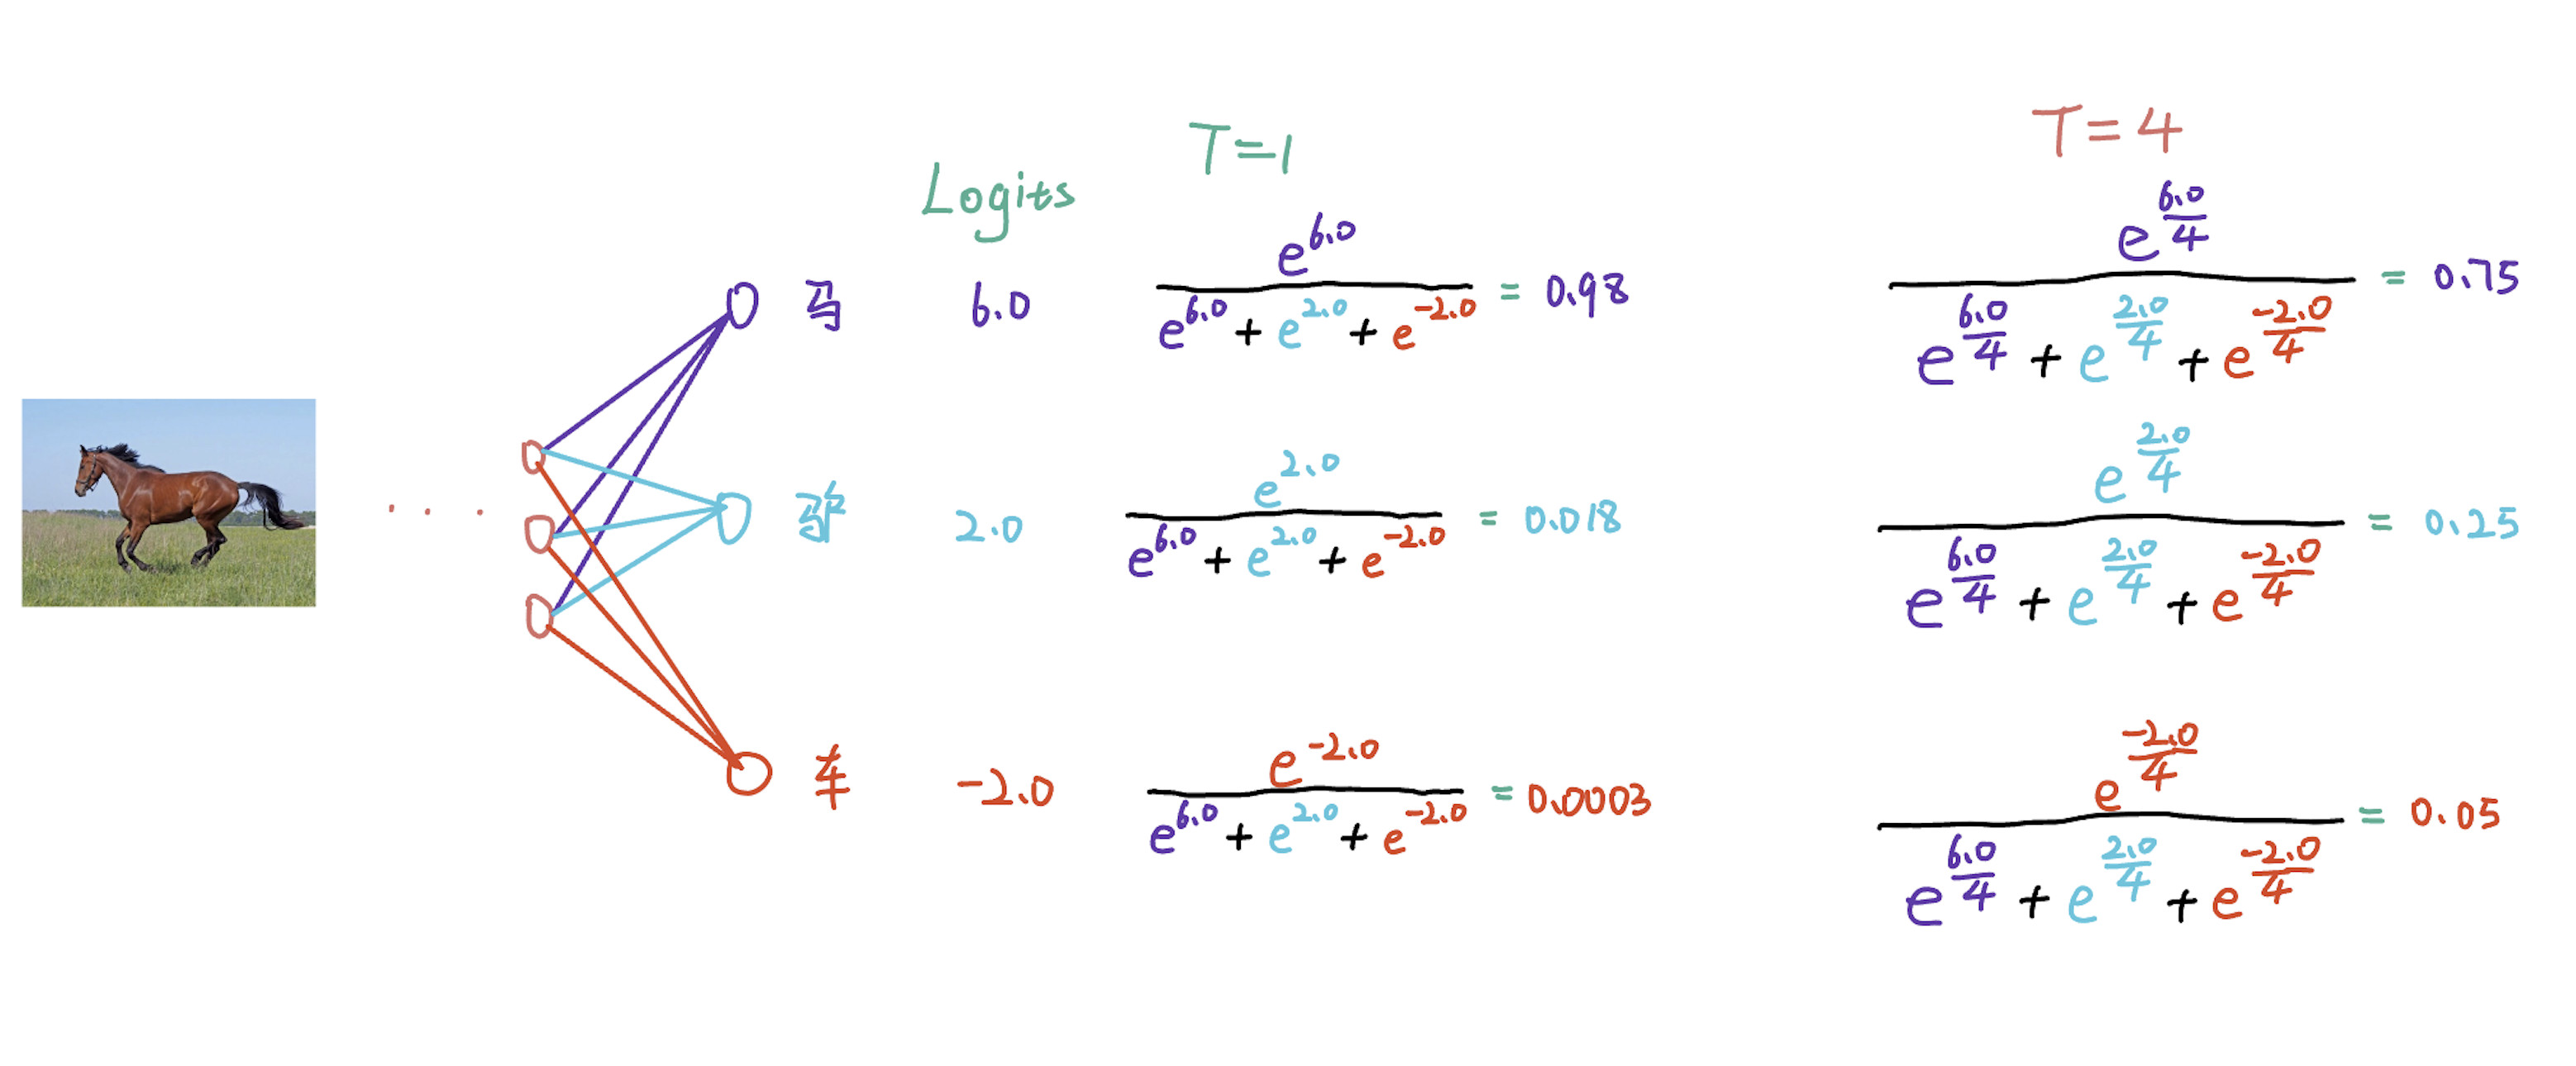 T=1
T=4
Logits
马 6.0 e^6.0 / (e^6.0 + e^2.0 + e^-2.0) = 0.98 e^(6.0/4) / (e^(6.0/4) + e^(2.0/4) + e^(-2.0/4)) = 0.75
驴 2.0 e^2.0 / (e^6.0 + e^2.0 + e^-2.0) = 0.018 e^(2.0/4) / (e^(6.0/4) + e^(2.0/4) + e^(-2.0/4)) = 0.25
车 -2.0 e^-2.0 / (e^6.0 + e^2.0 + e^-2.0) = 0.0003 e^(-2.0/4) / (e^(6.0/4) + e^(2.0/4) + e^(-2.0/4)) = 0.05